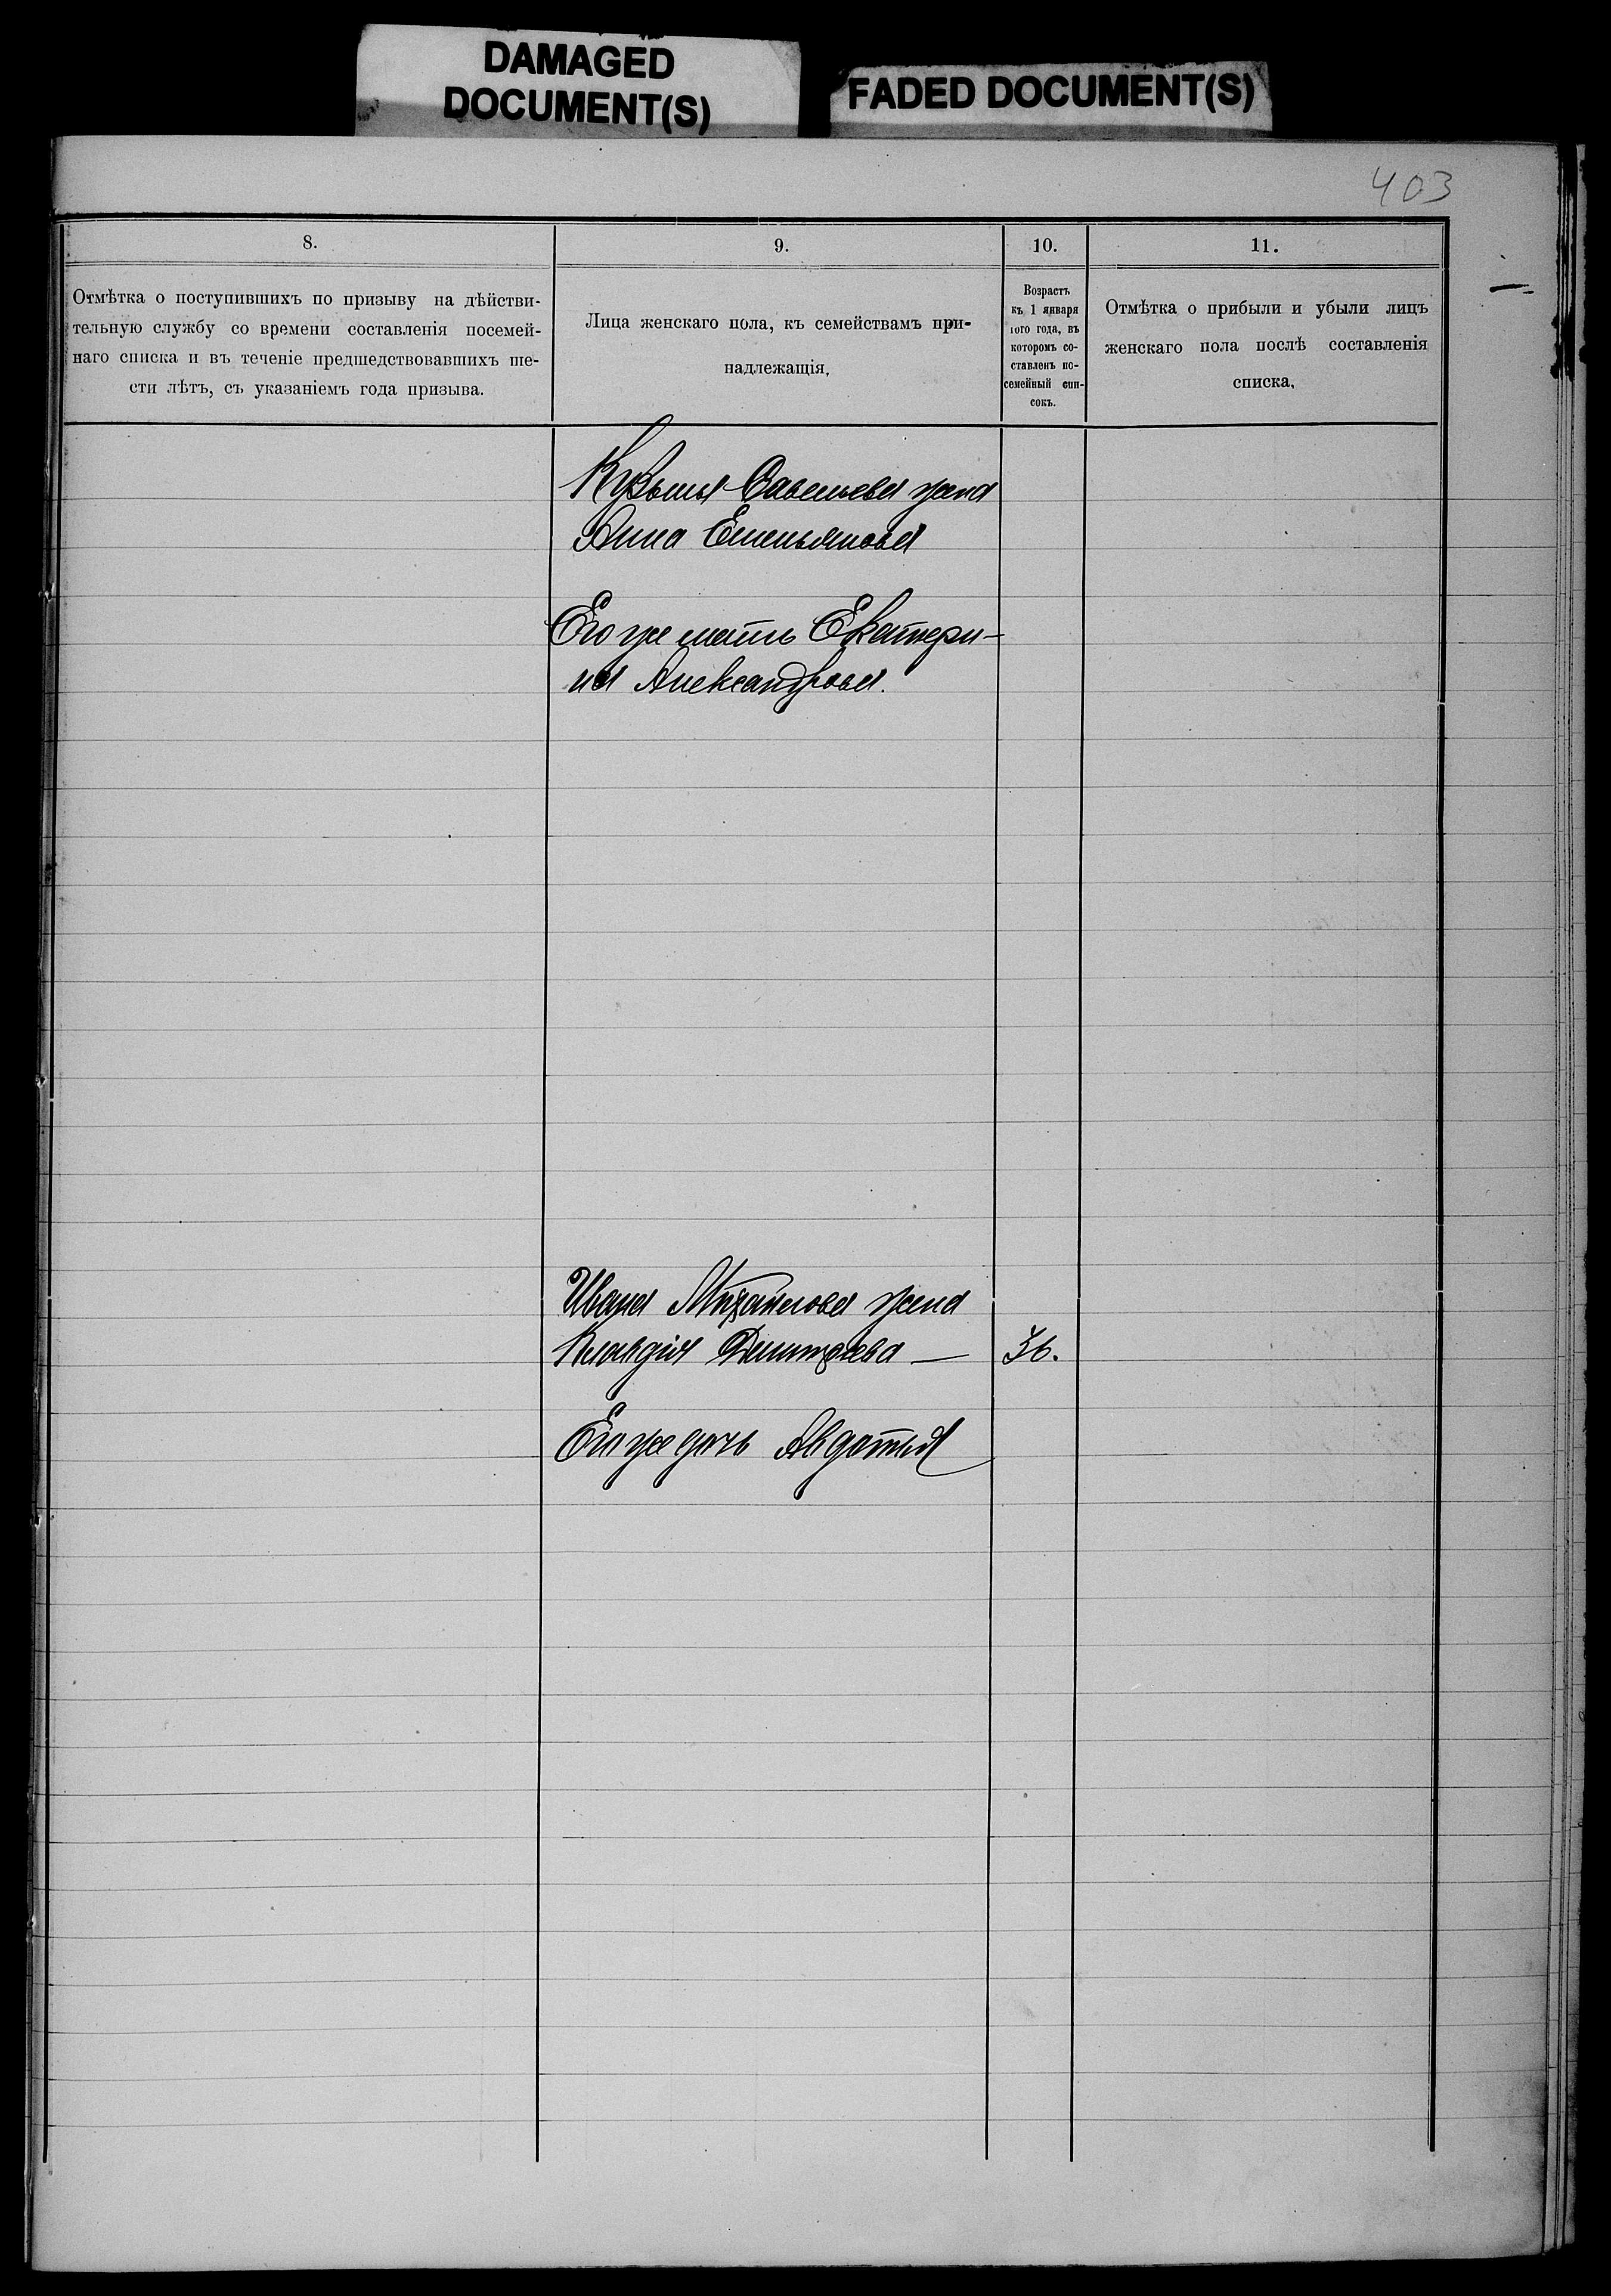 DAMAGED
DOCUMENT(S)
FADED DOCUMENT(S)
403
8.
Отмѣтка о поступившихъ по призыву на дѣйстви-
тельную службу со времени составленія посемей-
наго списка и въ теченіе предшедствовавшихъ ше-
сти лѣтъ, съ указаніемъ года призыва.
9.
Лица женскаго пола, къ семействамъ при-
надлежащія,
10.
Возрастъ
къ 1 января
того года, въ
которомъ со-
ставленъ по-
семейный спи-
сокъ.
11.
Отмѣтка о прибыли и убыли лицъ
женскаго пола послѣ составленія
списка,
Кузьмы Савельева жена
Анна Емельянова
Его же мать Екатери-
на Александрова.
Ивана Михайлова жена
Клавдія Дмитріева — 36.
Его же дочь Авдотья